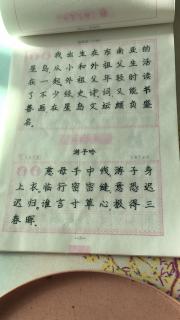 我出生在东南亚的
星岛,从小和外祖父生活
在一起。外祖父年轻时读
了不少经史诗词,能书
善画,在星岛文坛颇负盛
名。
游子吟
慈母手中线,游子身
上衣。临行密密缝,意恐迟
迟归。谁言寸草心,报得三
春晖。